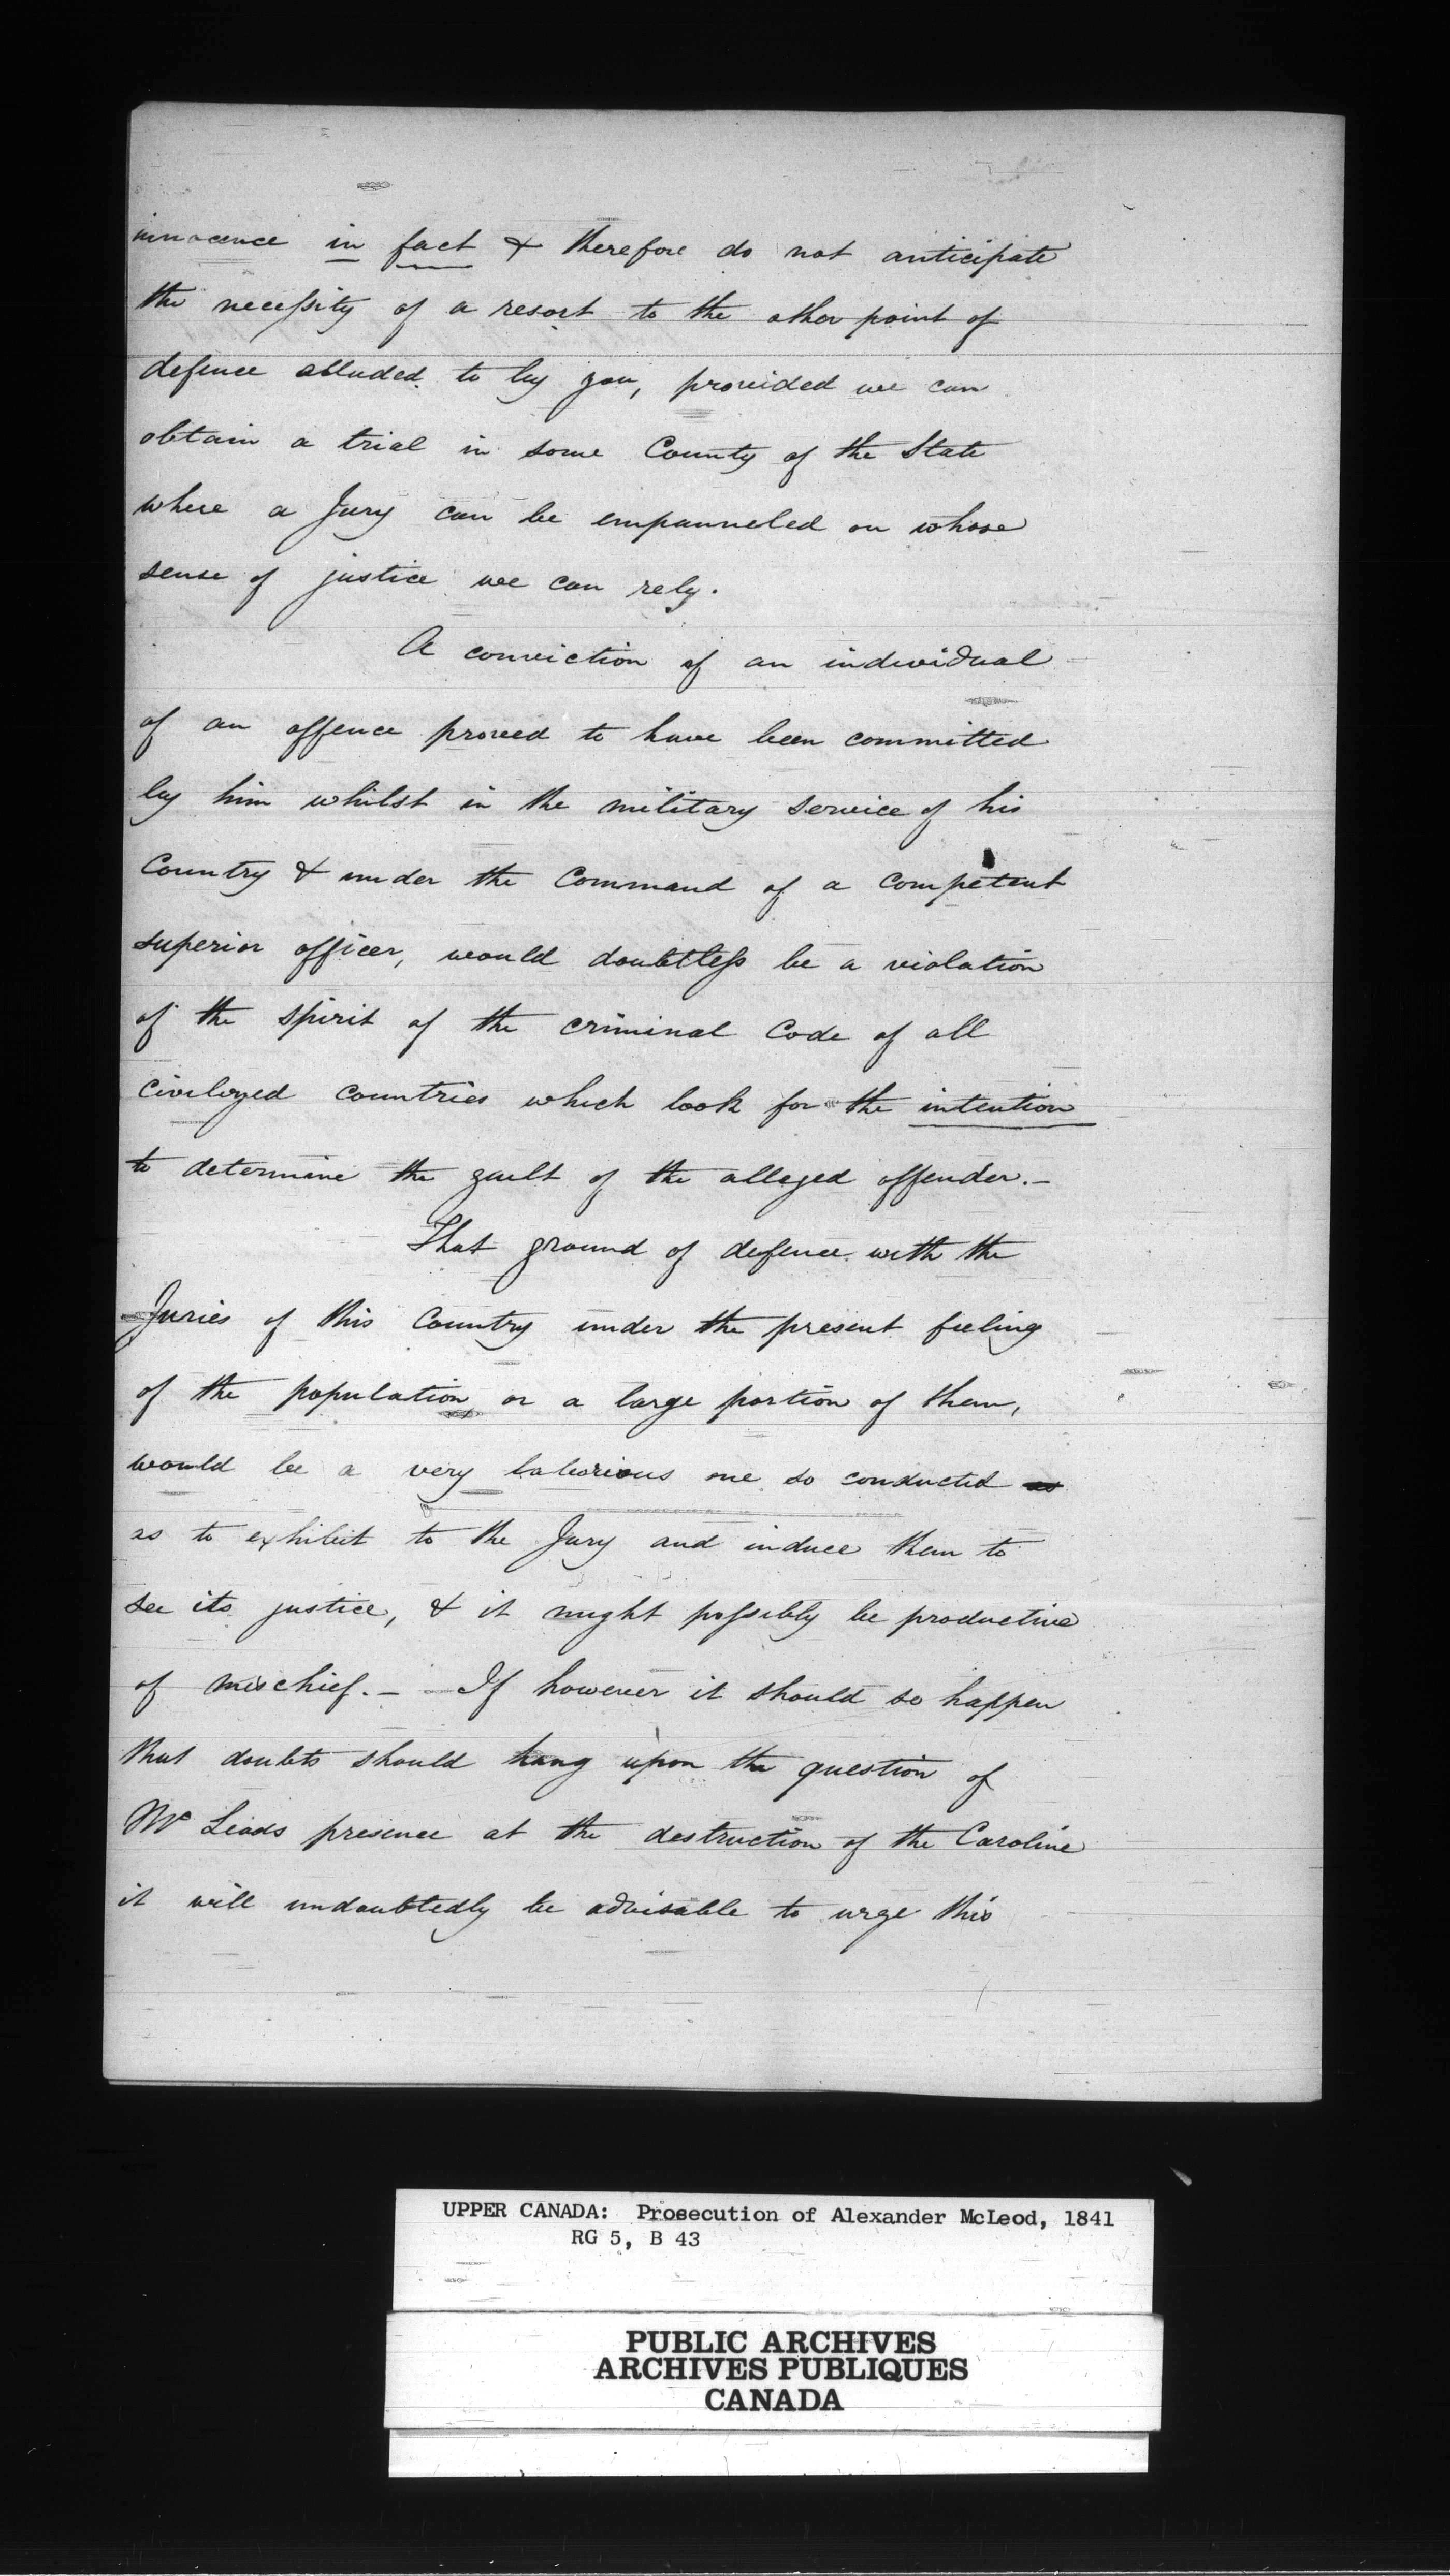 innocence in fact & therefore do not anticipate
the necessity of a resort to the other point of
defence alluded to by you, provided we can
obtain a trial in some County of the State
where a Jury can be empanneled on whose
sense of justice we can rely.
A conviction of an individual
of an offence proved to have been committed
by him whilst in the military service of his
Country & under the Command of a Competent
superior officer, would doubtless be a violation
of the spirit of the criminal Code of all
Civilized Countries which look for the intention
to determine the guilt of the alleged offender.—
That ground of defence with the
Juries of this Country under the present feeling
of the population or a large portion of them,
would be a very laborious one so conducted as
as to exhibit to the Jury and induce them to
see its justice, & it might possibly be productive
of mischief.— If however it should so happen
that doubts should hang upon the question of
Mc Leods presence at the destruction of the Caroline
it will undoubtedly be advisable to urge this
UPPER CANADA: Prosecution of Alexander McLeod, 1841
RG 5, B 43
PUBLIC ARCHIVES
ARCHIVES PUBLIQUES
CANADA